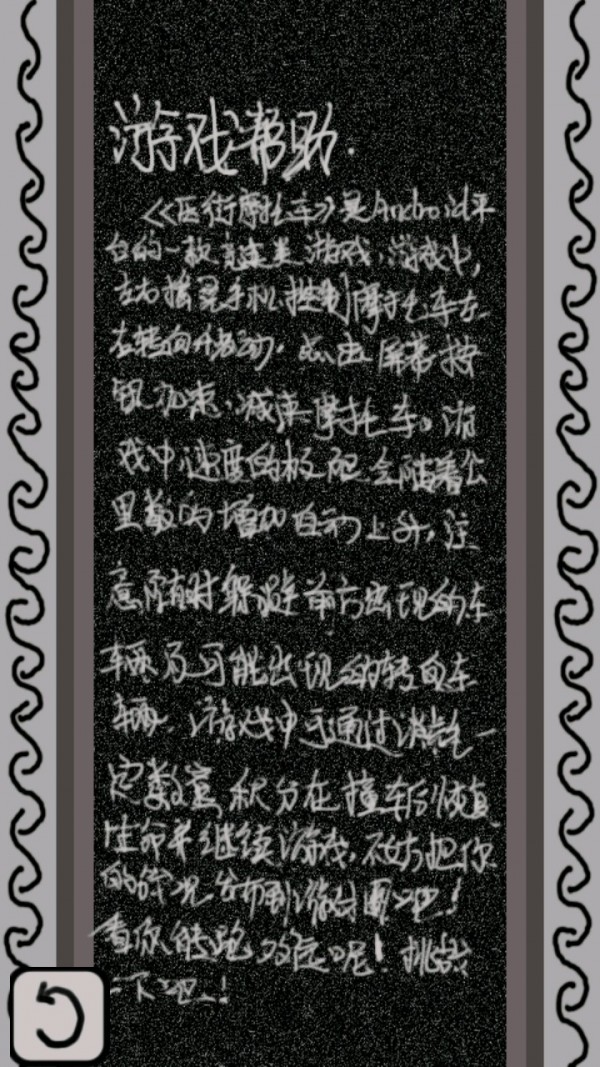 游戏帮助.
《医街摩托车》是Android平
台的一款竞速类游戏,游戏中,
左右摇晃手机控制摩托车左
右转向移动,点击屏幕按
钮加速、减速摩托车。游
戏中速度的极限会随着公
里数的增加自动上升,注
意随时躲避前方出现的车
辆及可能出现的转向车
辆.游戏中可通过消耗一
定数量积分在撞车后恢复
生命并继续游戏,不妨把你
的战况发布到游戏圈吧!
看你能跑多远呢!挑战
一下吧!